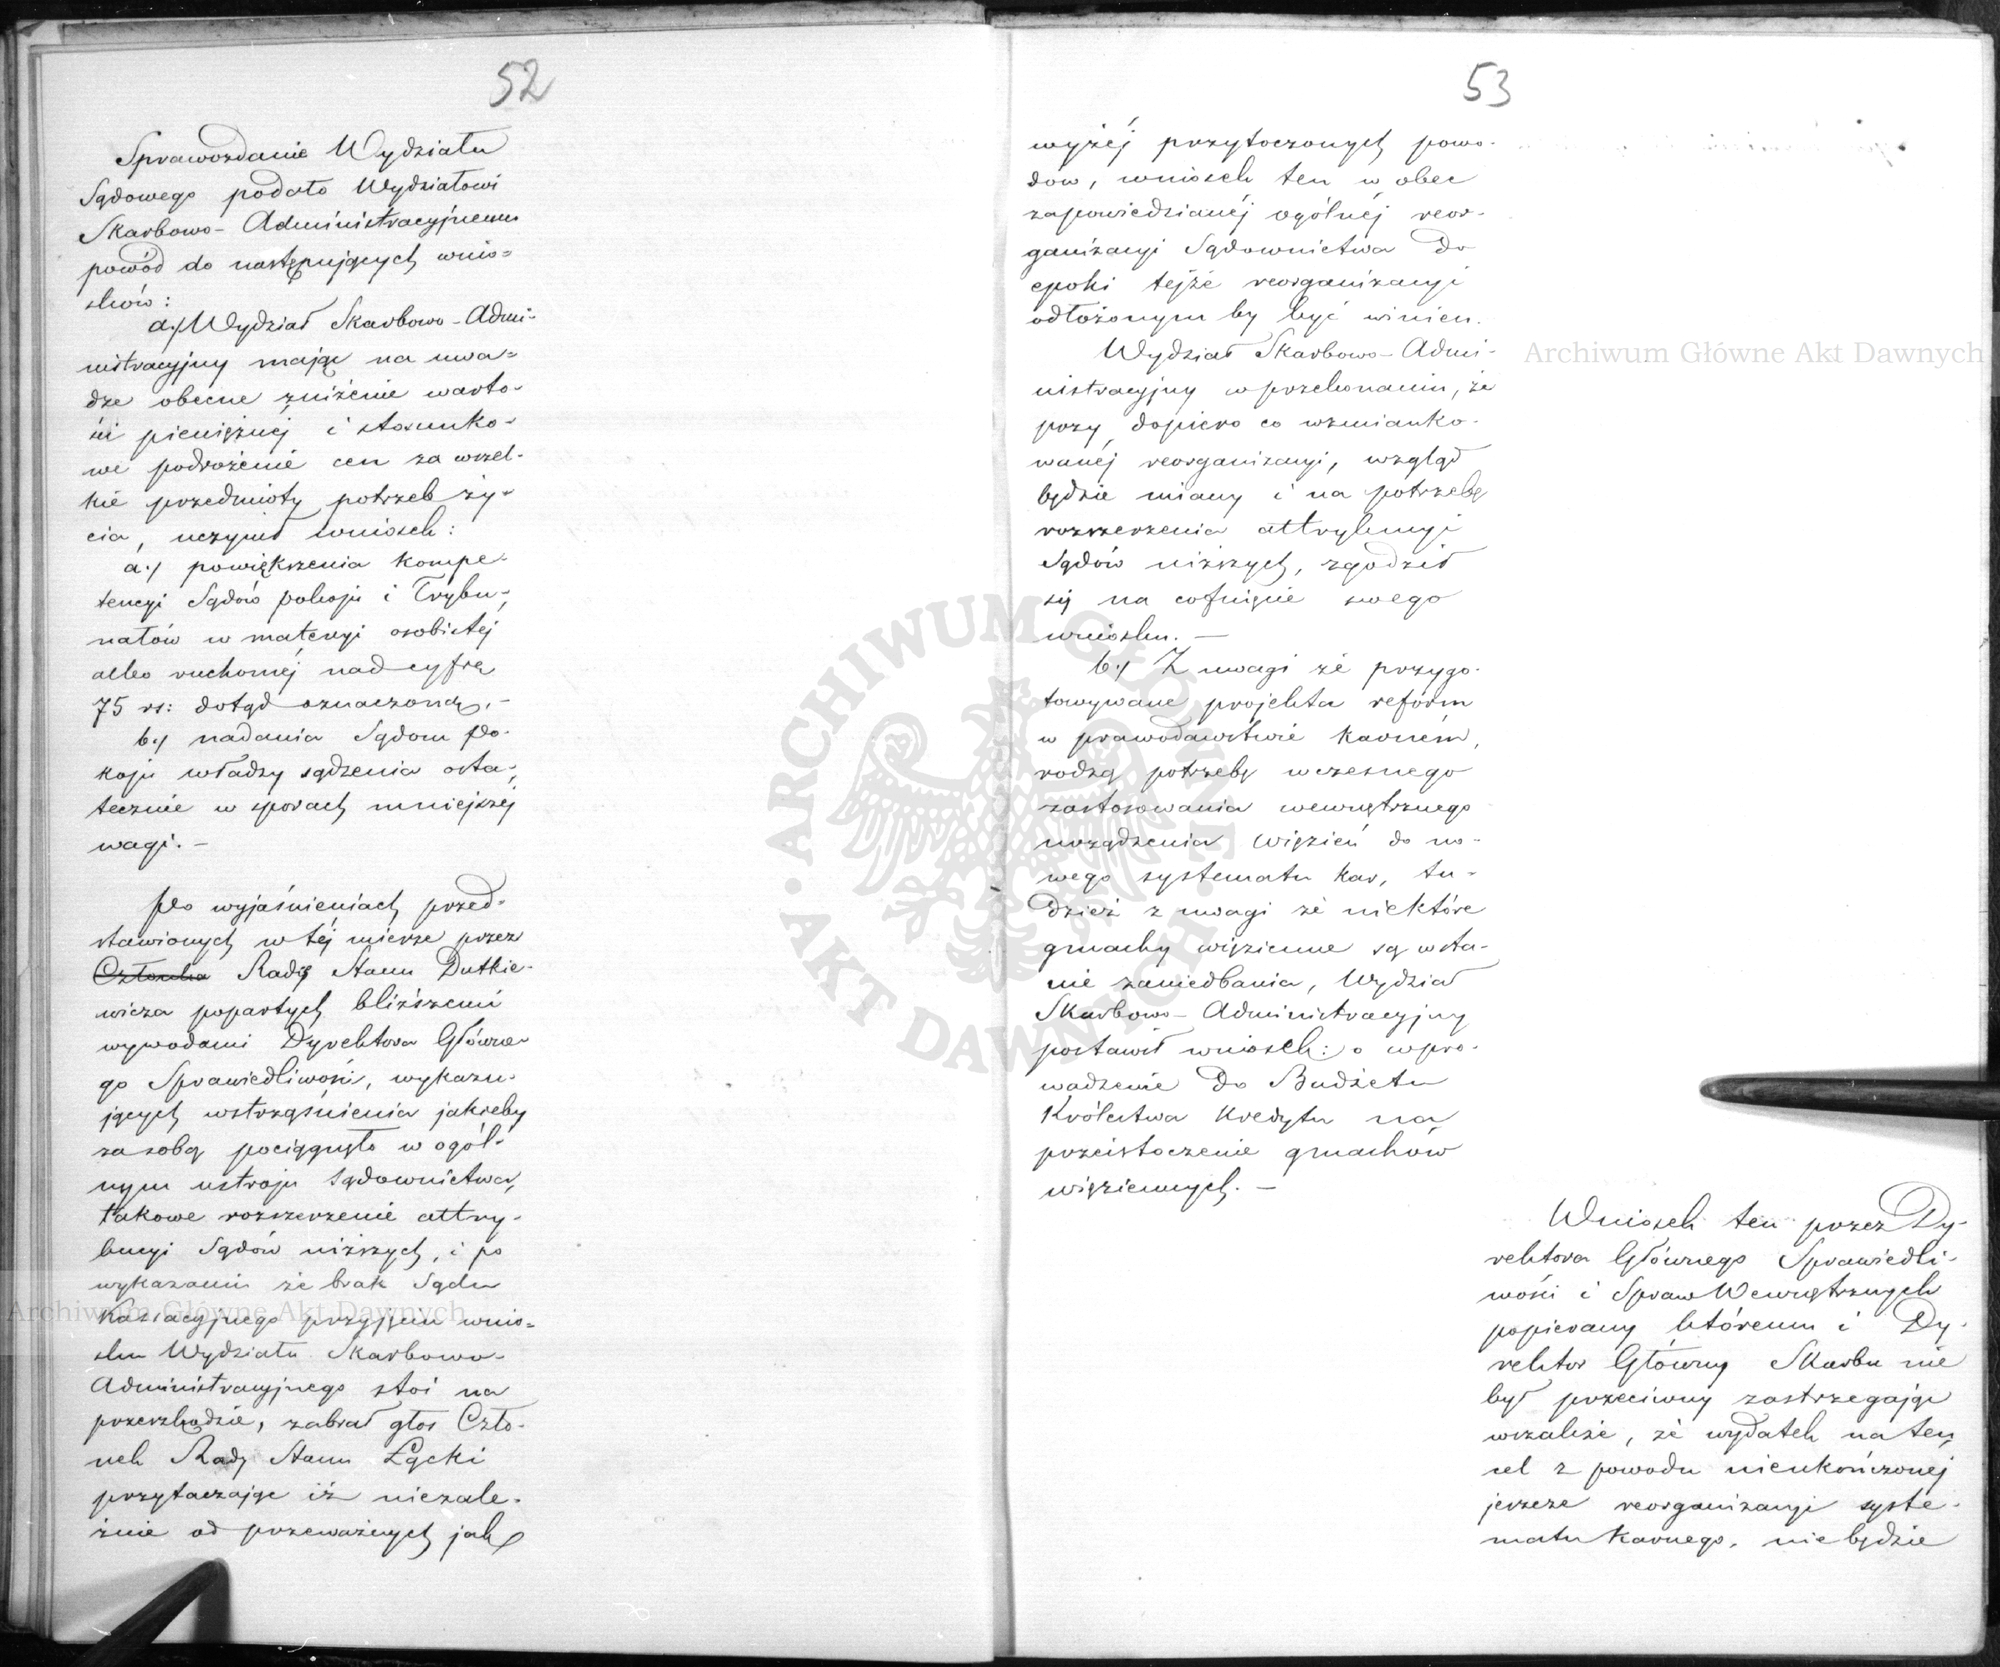 52
Sprawozdanie Wydziału
Sądowego podało Wydziałowi
Skarbowo-Administracyjnemu
powód do następujących wnio=
sków:
a./ Wydział Skarbowo-Admi-
nistracyjny mając na uwa=
dze obecne zniżenie warto-
ści pieniężnéj i stosunko-
we podrożenie cen za wszel-
kie przedmioty potrzeb ży-
cia, uczynił wniosek:
a./ powiększenia kompe-
tencyi Sądów pokoju i Trybu-
nałów w materyi osobistéj
albo ruchoméj nad cyfrę
75 rs: dotąd oznaczoną. —
b./ nadania Sądom Po-
koju władzy sądzenia osta-
tecznie w sporach mniejszéj
wagi. —
Po wyjaśnieniach przed-
stawionych w téj mierze przez
Członka Radcę Stanu Dutkie-
wicza popartych bliższemi
wywodami Dyrektora Główne-
go Sprawiedliwości, wykazu-
jących wstrząśnienia jakieby
za sobą pociągnęło w ogól-
nym ustroju Sądownictwa,
takowe rozszerzenie attry-
bucyi Sądów niższych, i po
wykazaniu że brak Sądu
Kassacyjnego przyjęciu wnio=
sku Wydziału Skarbowo-
Administracyjnego stoi na
przeszkodzie, zabrał głos Czło-
nek Rady Stanu Łącki
przytaczając iż niezale-
żnie od przeważnych jak
53
wyżéj przytoczonych powo-
dów, wniosek ten w obec
zapowiedzianéj ogólnéj reor-
ganizacyi Sądownictwa do
epoki tejże reorganizacyi
odłożonym by być winien.
Wydział Skarbowo-Admi-
nistracyjny w przekonaniu, że
przy dopiero co wzmianko-
wanéj reorganizacyi, wzgląd
będzie miany i na potrzebę
rozszerzenia attrybucyi
Sądów niższych, zgodził
się na cofnięcie swego
wniosku. —
b./ Z uwagi że przygo-
towywane projekta reform
w prawodawstwie karném,
rodzą potrzebę wczesnego
zastosowania wewnętrznego
urządzenia więzień do no-
wego systematu kar, tu-
dzież z uwagi że niektóre
gmachy więzienne są w sta-
nie zaniedbania, Wydział
Skarbowo-Administracyjny
postawił wniosek: o wpro-
wadzenie do Budżetu
Królestwa Kredytu na
przeistoczenie gmachów
więziennych. —
Wniosek ten przez Dy-
rektora Głównego Sprawiedli-
wości i Spraw Wewnętrznych
popierany któremu i Dy-
rektor Główny Skarbu nie
był przeciwny zastrzegając
wszakże, że wydatek na ten
cel z powodu nieukończonéj
jeszcze reorganizacyi syste-
matu karnego, nie będzie
Archiwum Główne Akt Dawnych
Archiwum Główne Akt Dawnych
ARCHIWUM GŁÓWNE · AKT DAWNYCH ·